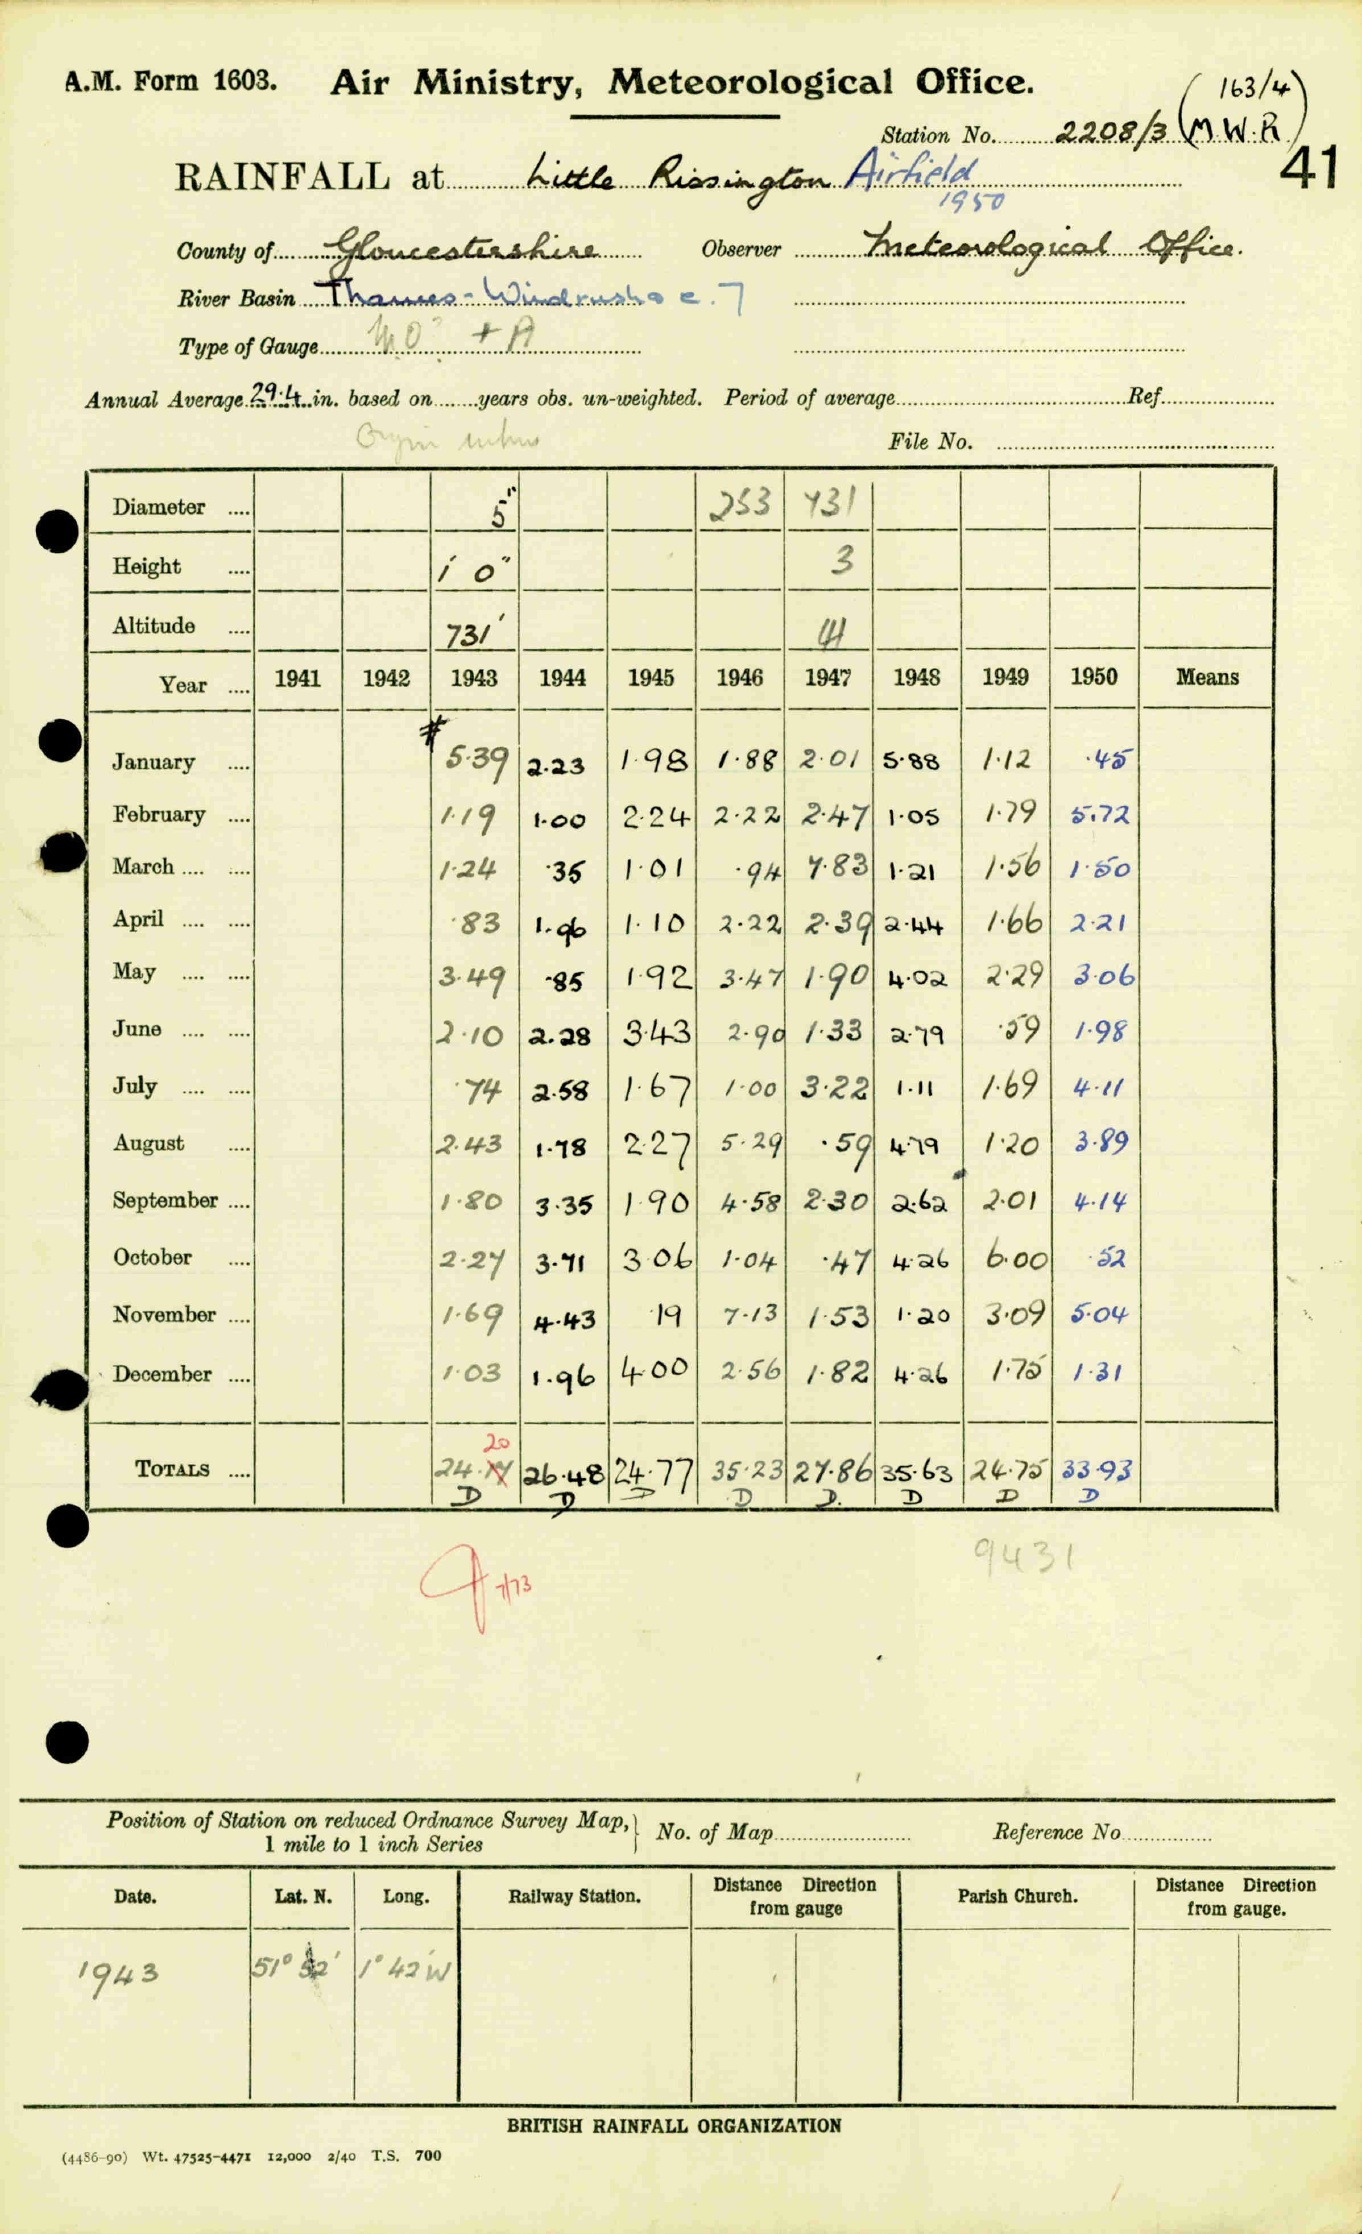 A.M. Form 1603. Air Ministry, Meteorological Office.
(163/4)
Station No. 2208/3 (M.W.R.)
41
RAINFALL at Little Rissington Airfield
1950
County of Gloucestershire Observer Meteorological Office.
River Basin Thames - Windrush
Type of Gauge M.O. + A
Annual Average 29.4 in. based on years obs. un-weighted. Period of average Ref.
File No.
Diameter 5" 253 731
Height 1' 0" 3
Altitude 731' 41
Year 1941 1942 1943 1944 1945 1946 1947 1948 1949 1950 Means
January # 5.39 2.23 1.98 1.88 2.01 5.88 1.12 .45
February 1.19 1.00 2.24 2.22 2.47 1.05 1.79 5.72
March 1.24 .35 1.01 .94 7.83 1.21 1.56 1.50
April .83 1.96 1.10 2.22 2.39 2.44 1.66 2.21
May 3.49 .85 1.92 3.47 1.90 4.02 2.29 3.06
June 2.10 2.28 3.43 2.90 1.33 2.79 .59 1.98
July .74 2.58 1.67 1.00 3.22 1.11 1.69 4.11
August 2.43 1.78 2.27 5.29 .59 4.79 1.20 3.89
September 1.80 3.35 1.90 4.58 2.30 2.62 2.01 4.14
October 2.27 3.71 3.06 1.04 .47 4.26 6.00 .52
November 1.69 4.43 .19 7.13 1.53 1.20 3.09 5.04
December 1.03 1.96 4.00 2.56 1.82 4.26 1.75 1.31
20
TOTALS 24.17 26.48 24.77 35.23 27.86 35.63 24.75 33.93
D D D D D. D D D
9431
7/73
Position of Station on reduced Ordnance Survey Map, 1 mile to 1 inch Series } No. of Map Reference No.
Date. Lat. N. Long. Railway Station. Distance Direction from gauge Parish Church. Distance Direction from gauge.
1943 51° 52' 1° 42' W
BRITISH RAINFALL ORGANIZATION
(4486-90) Wt. 47525-4471 12,000 2/40 T.S. 700